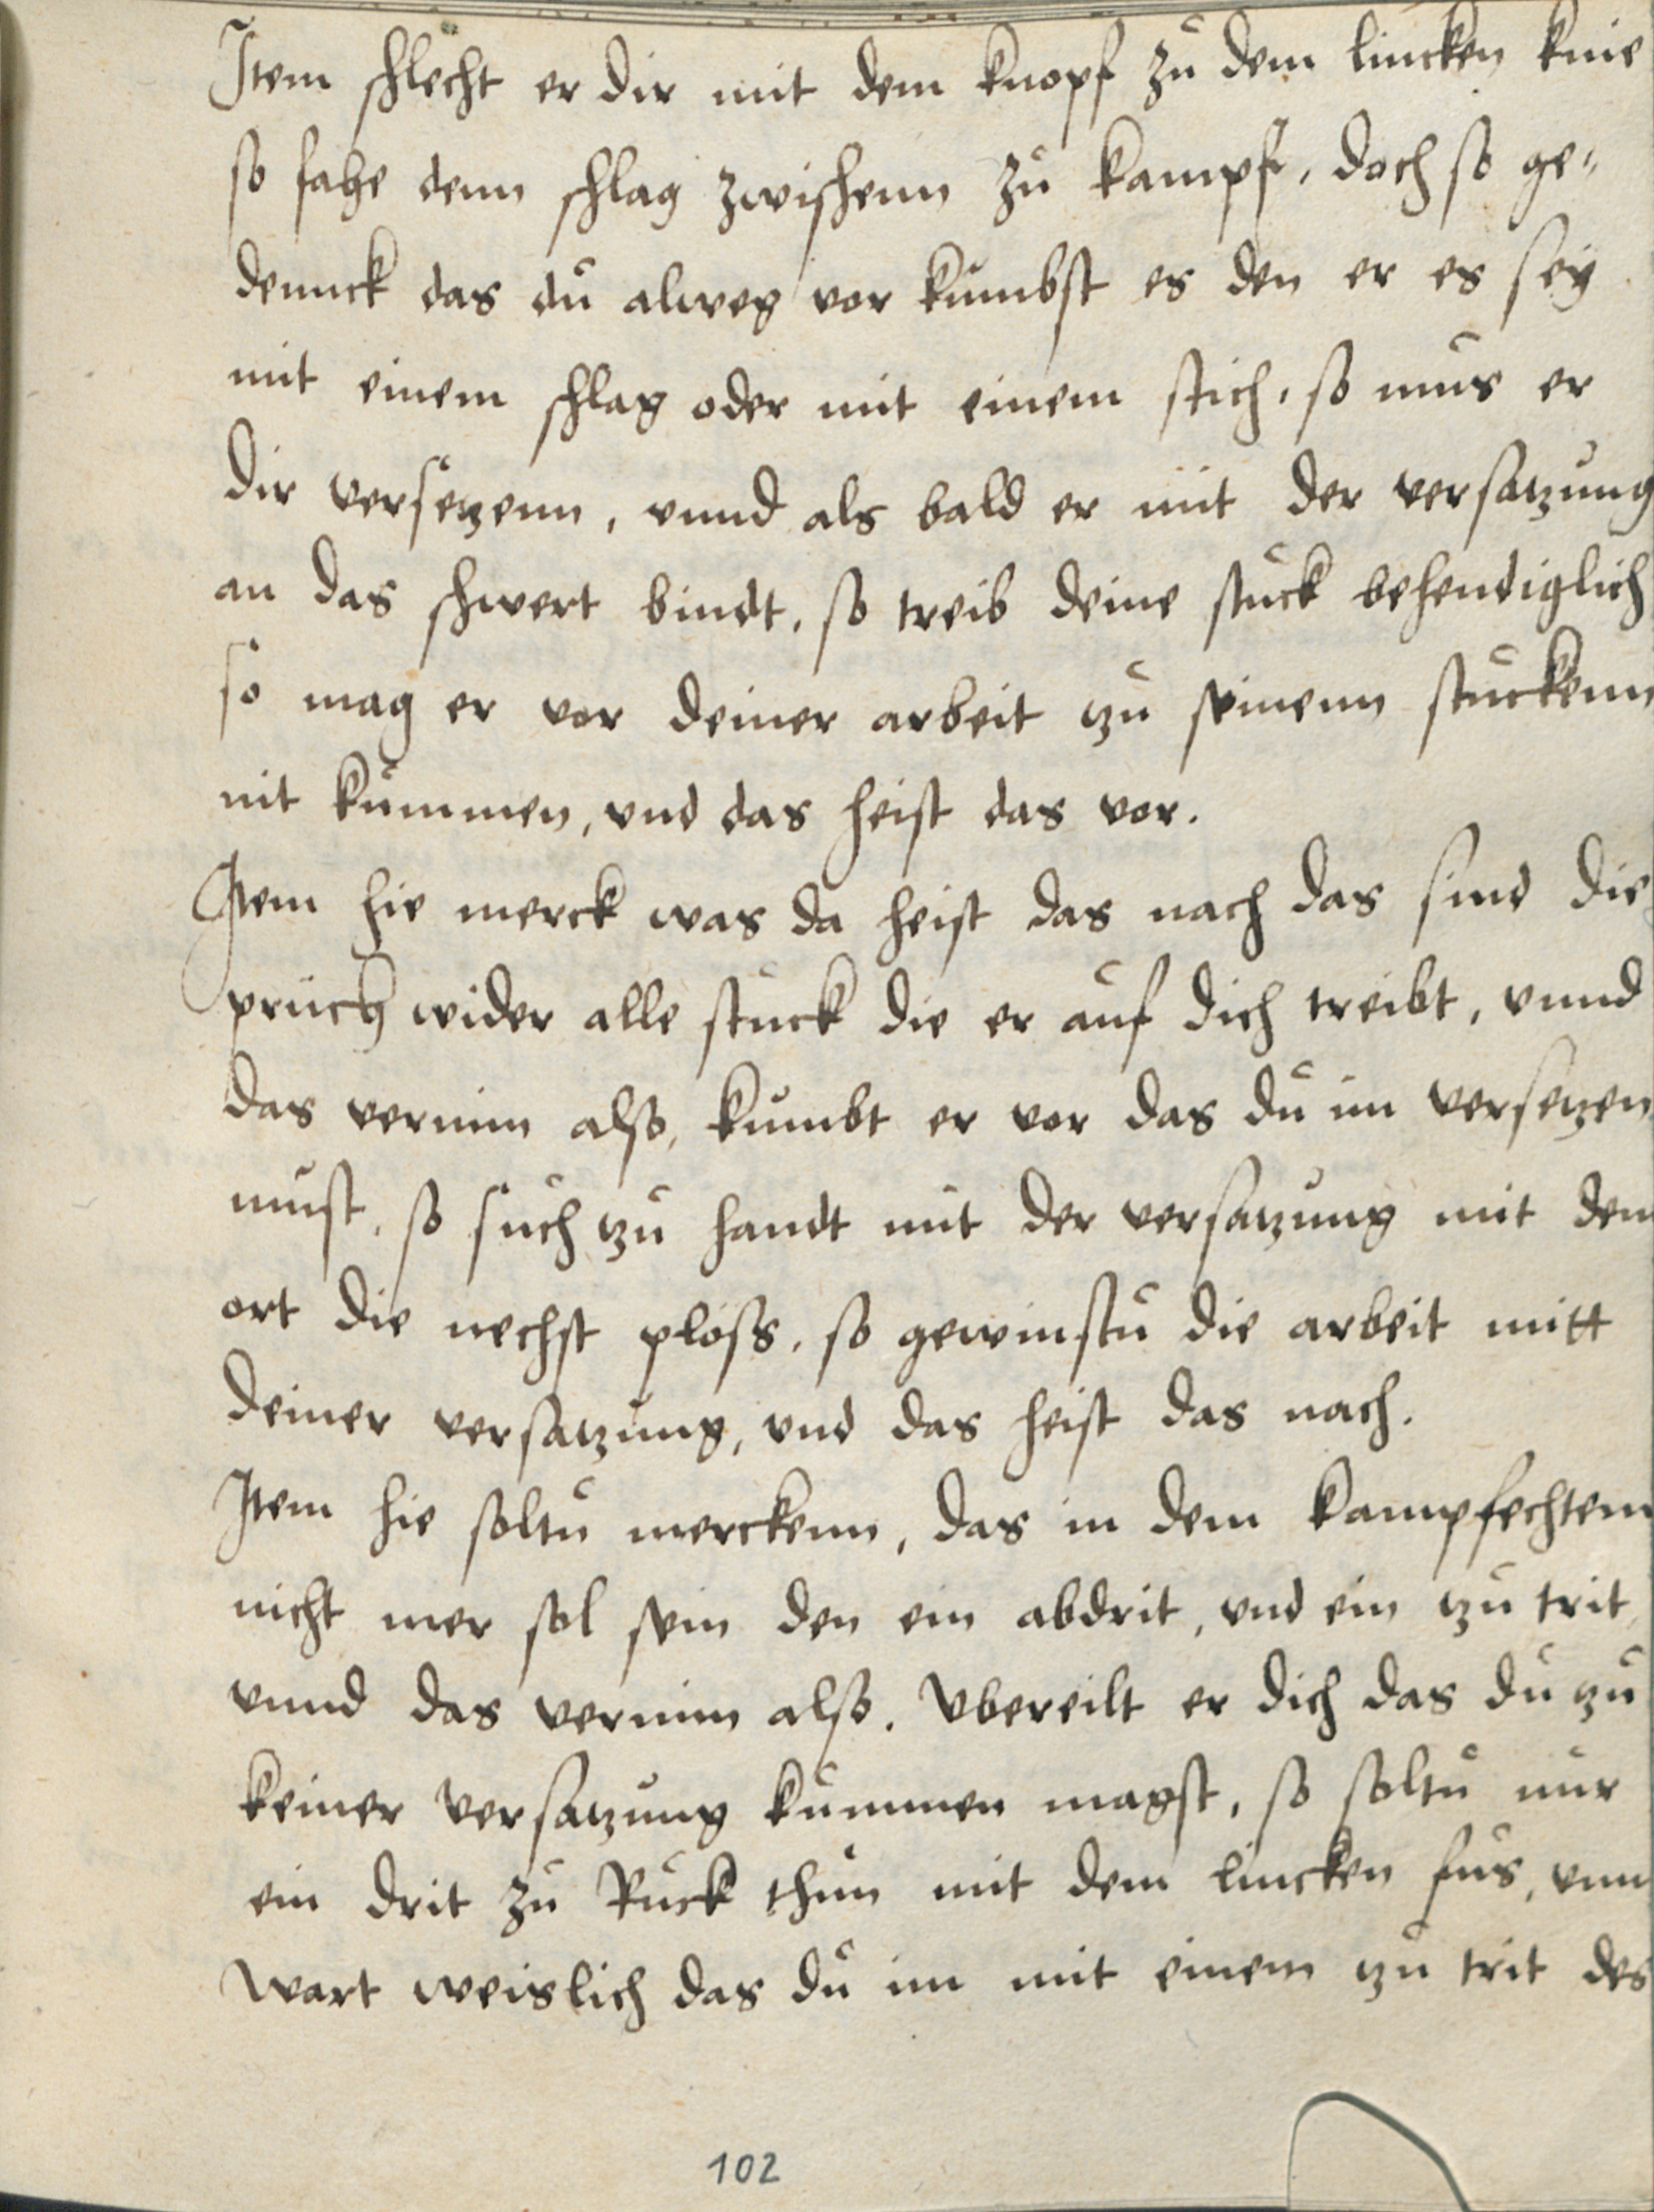 Item schlecht er dir mit dem knopf zu dem lincken knie
so fahe denn schlag zwischenn zu kampf, doch so ge-
dennck das du alweg vor kumbst es den er es sey
mit einem schlag oder mit einem stich, so mus er
dir versetzenn, vnnd als bald er mit der versatzung
an das schwert bindt, so treib deine stuck behendiglich
so mag er vor deiner arbeit tzu seinenn stuckenn
nit kummen, vnd das heist das vor.
Item hie merck was da heist das nach das sind die
pruch wider alle stuck die er auf dich treibt, vnnd
das vernim also, kumbt er vor das du im versetzen
must, so such tzu handt mit der versatzung mit dem
ort die nechst ploss, so gewinstu die arbeit mitt
deiner versatzung, vnd das heist das nach.
Item hie soltu merckenn, das in dem kampfechtenn
nicht mer sol sein den ein abdrit, vnd ein tzu trit
vnnd das vernim also. Vbereilt er dich das du tzu
keiner versatzung kummen magst, so soltu nur
ein drit zu Ruck thun mit dem lincken fus, vnn
wart weislich das du im mit einem tzu trit des
102